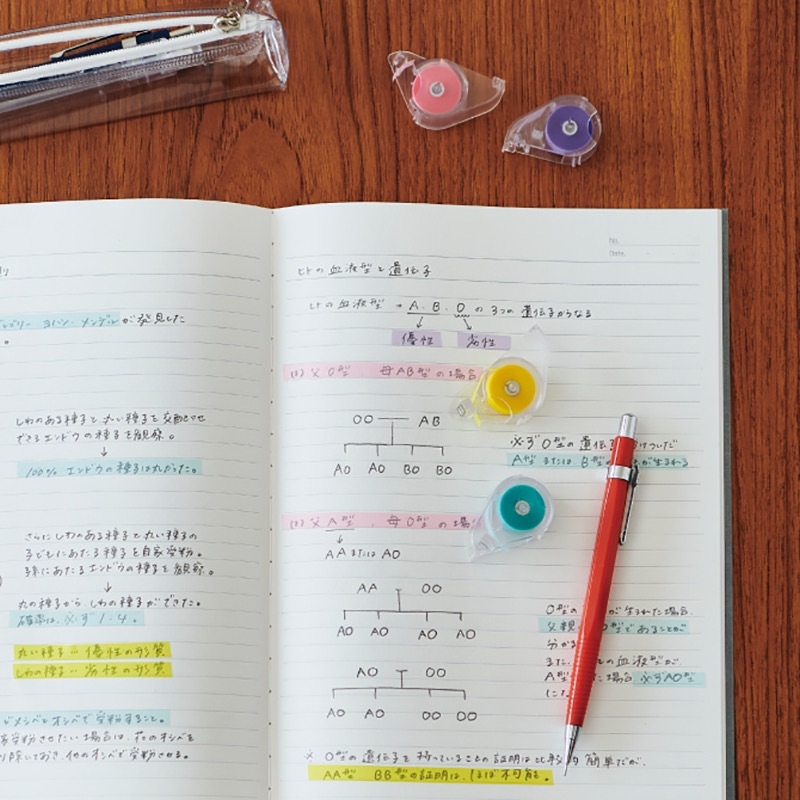 が発見した
しわのある種子と丸い種子を交配させ
できるエンドウの種子を観察。
↓
100% エンドウの種子は丸かった。
さらにしわのある種子と丸い種子の
子どもにあたる種子を自家受粉。
孫にあたるエンドウの種子を観察。
↓
丸の種子から しわの種子ができた。
確率は、必ず 1-4。
丸い種子 … 優性の形質
しわの種子 … 劣性の形質
メシベとオシベで受粉すること。
受粉させたい場合は、花のオシベを
除しておき、他のオシベで受粉させる。
No.
Date
ヒトの血液型と遺伝子
ヒトの血液型 → A、B、O の 3つの 遺伝子からなる
優性 劣性
父 O型、母 AB型 の場合
OO AB
AO AO BO BO
必ず O型の 遺伝子
A型 または B型 が生まれる
父 A型、母 O型 の場
↓
AA または AO
AA OO
AO AO AO AO
AO OO
AO AO OO OO
O型の が生まれた場合、
父親 型であることが
分か
また、 の血液型が
A型 場合 必ずAO型
に
※ O型の 遺伝子を持っていることの証明は比較的 簡単だが、
AA型 BB型の証明は、ほぼ不可能。